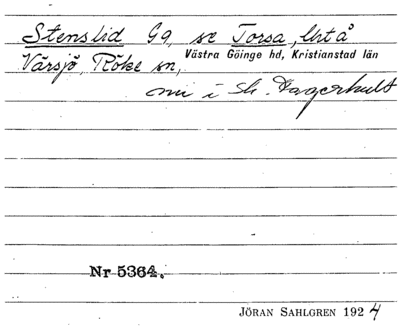 Stenslid Gg, se Torsa, Urtå
Värsjö, Röke sn, Västra Göinge hd, Kristianstad län
nu i St. Hagerhult
Nr 5364.
JÖRAN SAHLGREN 1924